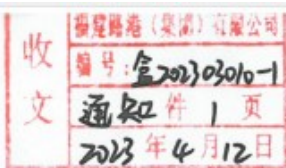 收文
福建路港（集团）有限公司
编号：盒202303010-1
通知件1页
2023年4月12日